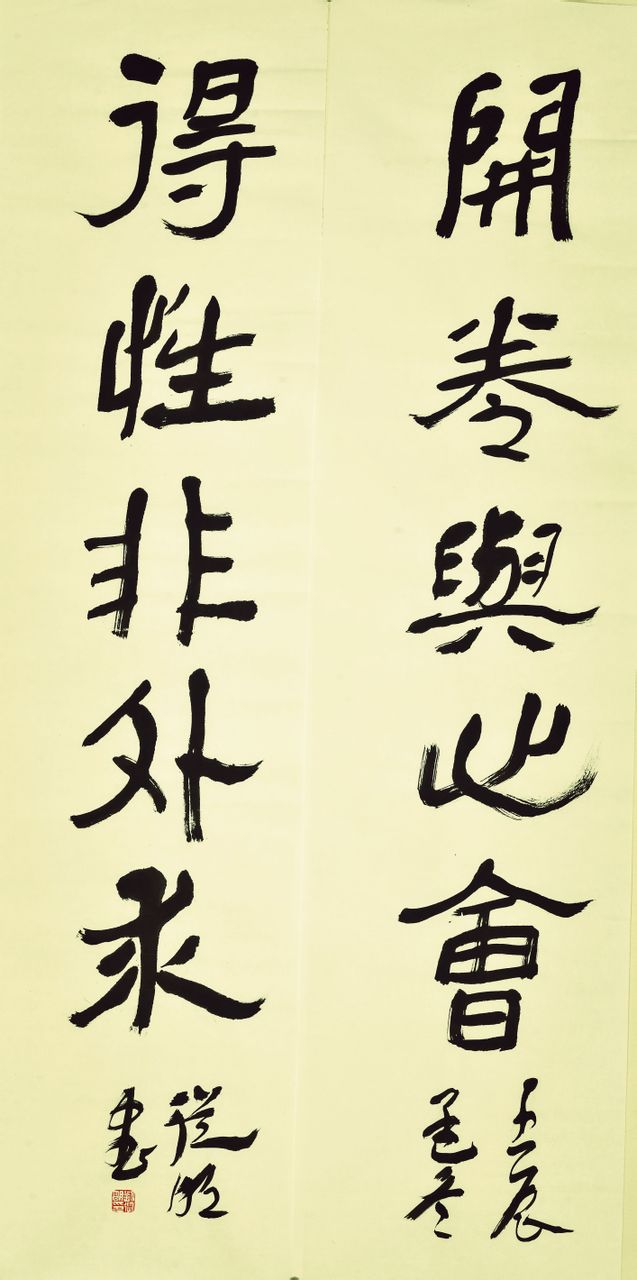 開卷與心會
壬辰
孟冬
得性非外求
書